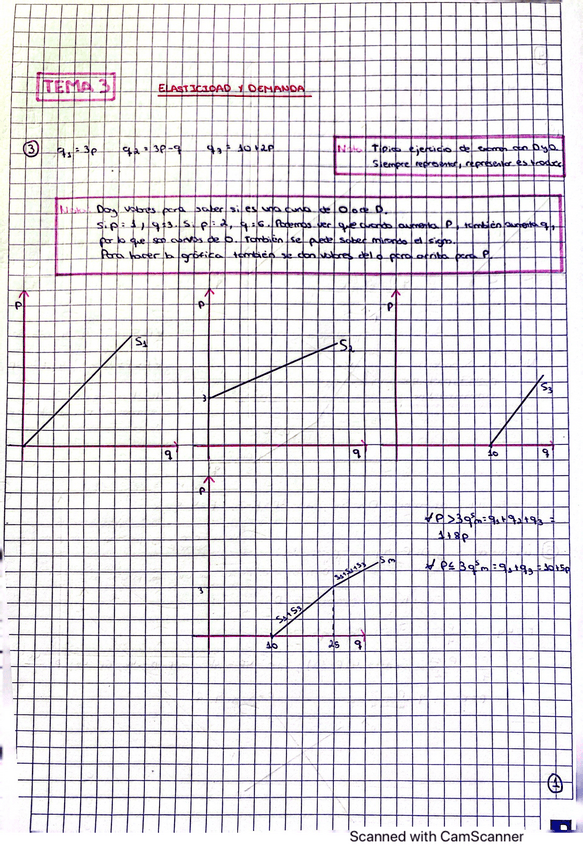 TEMA 3
ELASTICIDAD Y DEMANDA
③ q₁ = 3p q₂ = 3p-9 q₃ = 10+2p
Nota: Típico ejercicio de examen con D y O.
Siempre representar, representar es traducir
Nota: Doy valores para saber si es una curva de O o de D.
Si p = 1, q = 3. Si p = 2, q = 6. Podemos ver que cuando aumenta P, también aumenta q,
por lo que son curvas de O. También se puede saber mirando el signo.
Para hacer la gráfica también se dan valores del 0 para arriba para P.
P
S₁
q
P
3
S₂
q
P
S₃
10
q
P
3
S₁+S₃
S₁+S₂+S₃
Sm
10
25
q
∀ P > 3 qˢm = q₁+q₂+q₃ =
1+8p
∀ P ≤ 3 qˢm = q₁+q₃ = 10+5p
①
Scanned with CamScanner